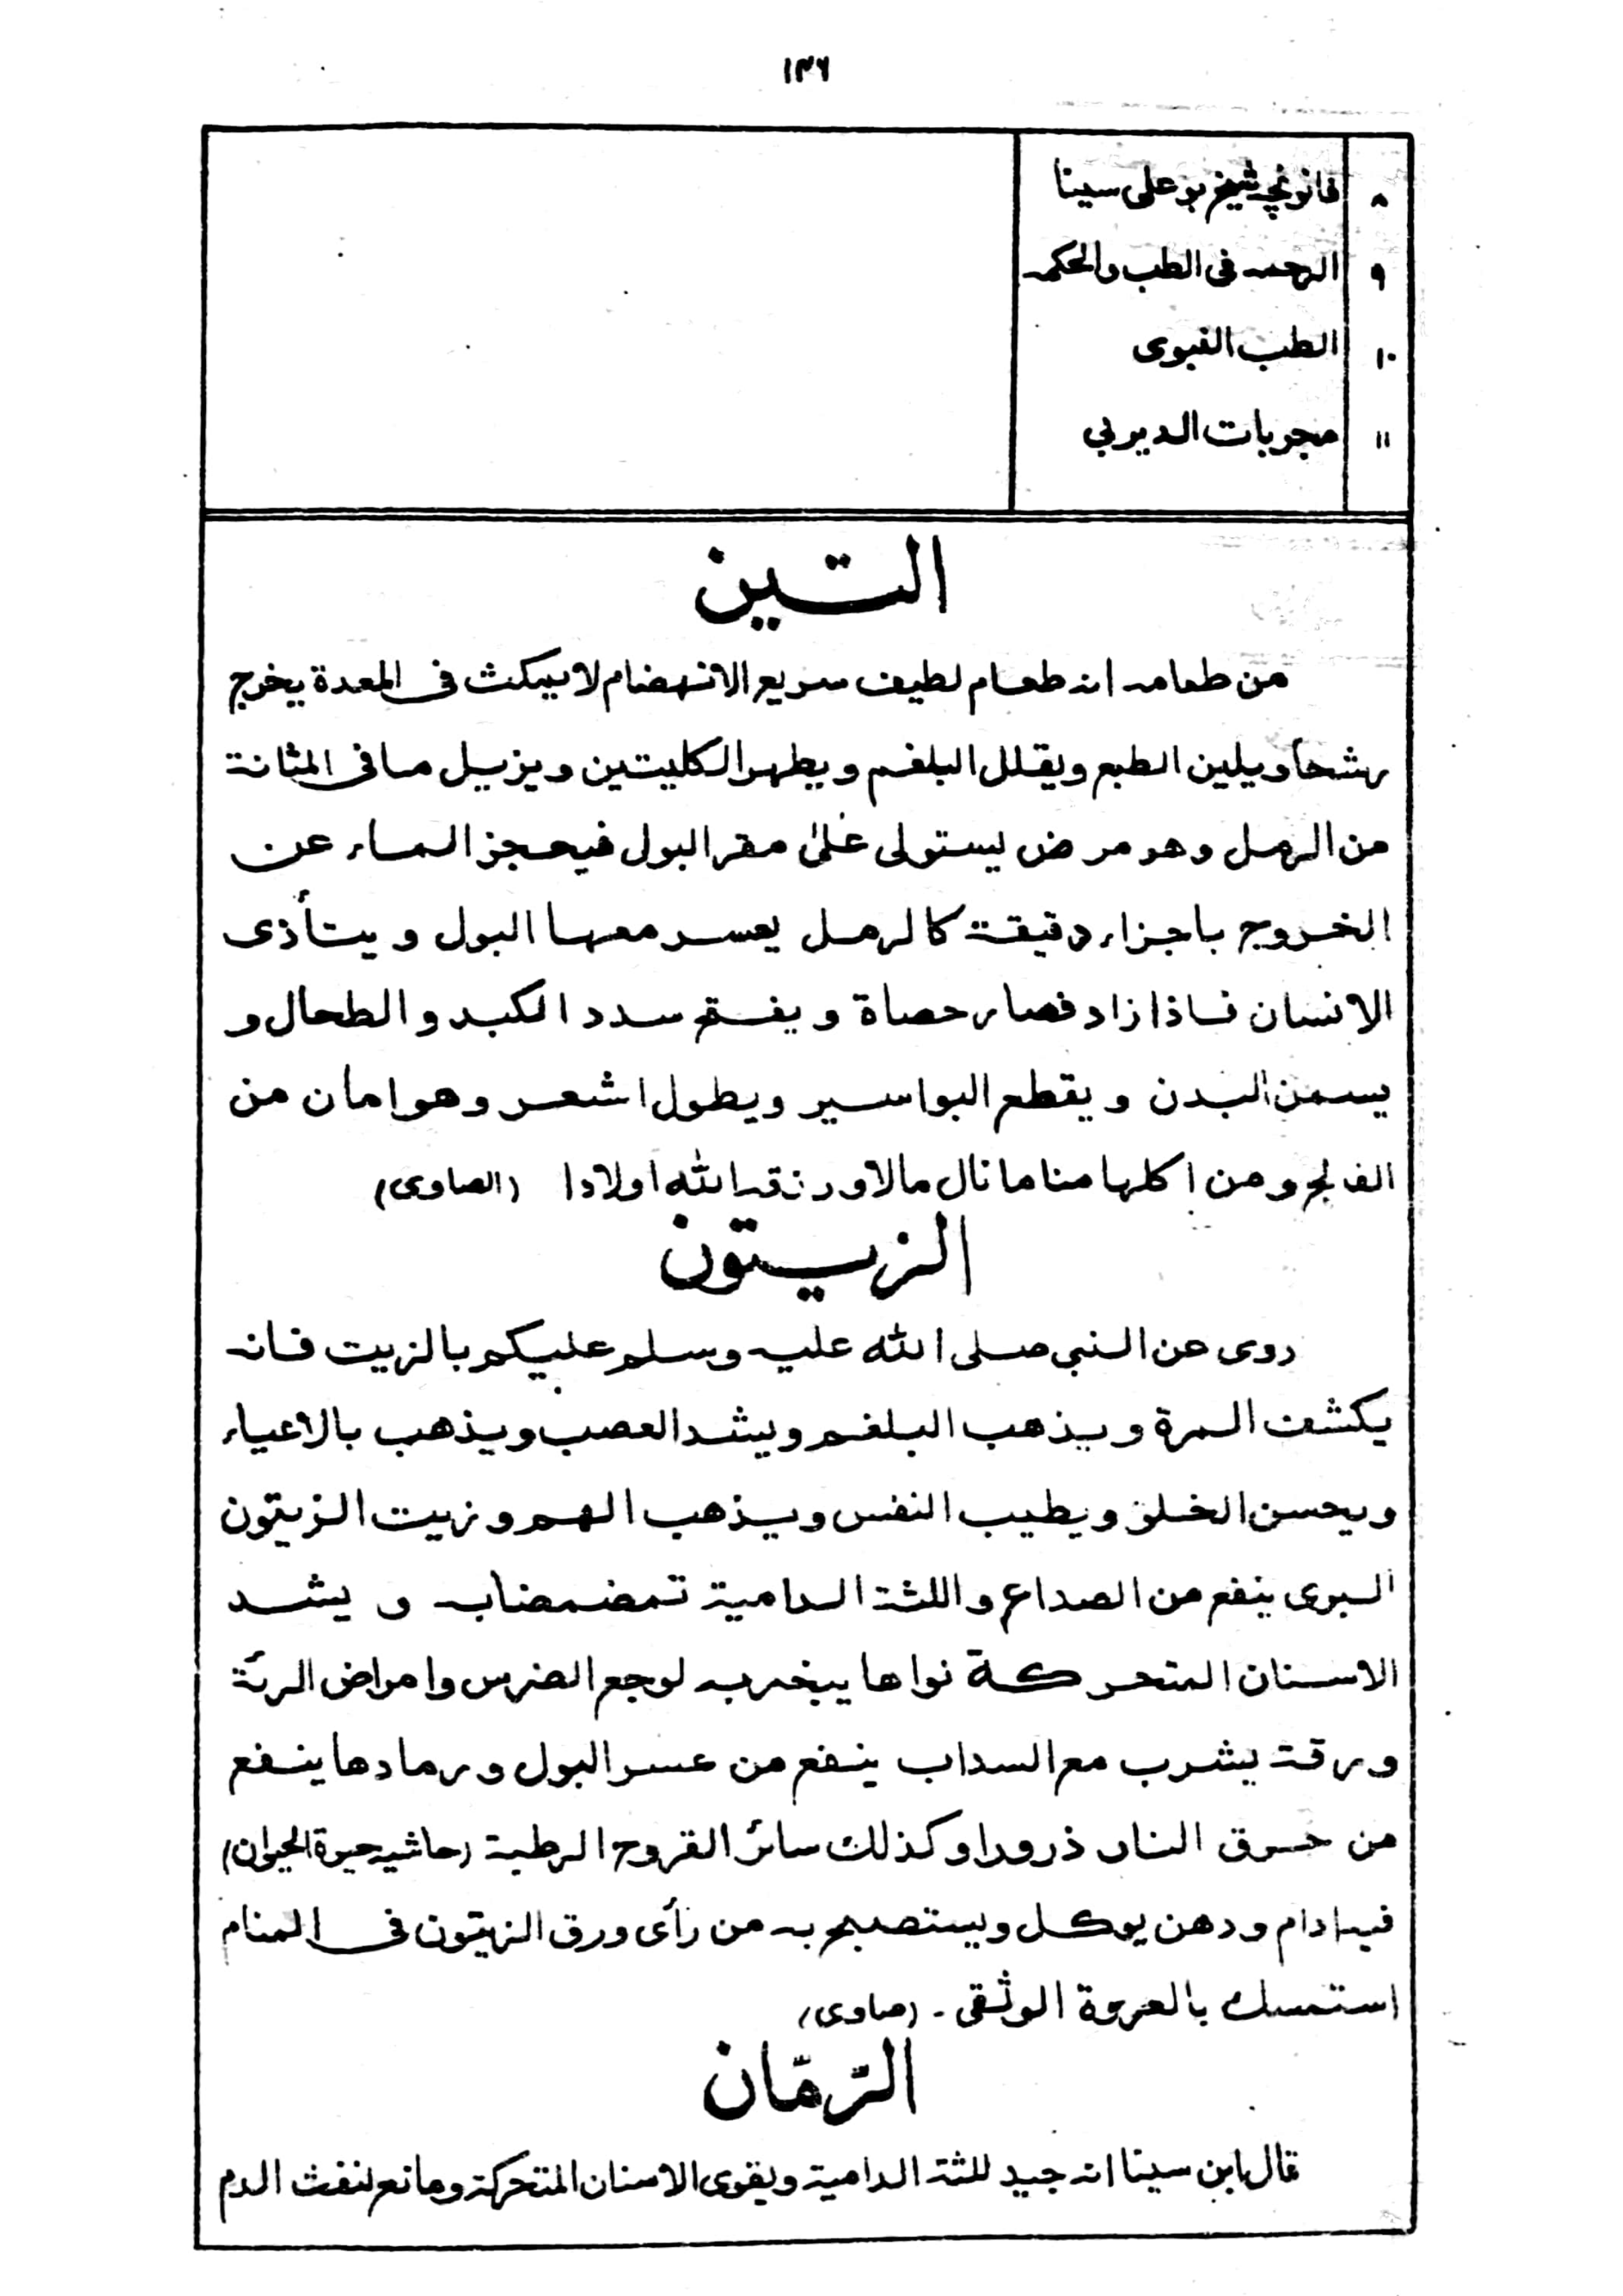 ١٣٦
٨ قانونچہ شیخ بو علی سینا
٩ الرحمہ فی الطب والحکمہ
١٠ الطب النبوی
١١ مجربات الدیربی
التين
من طعامہ انہ طعام لطیف سریع الانهضام لا یمکث فی المعدة یخرج
رشحاً ویلین الطبع ویقلل البلغم ویطهر الکلیتین ویزیل ما فی المثانة
من الرمل وهو مرض یستولی علیٰ مقر البول فیحجز الماء عن
الخروج باجزاء دقیقة کالرمل یعسر معها البول و یتأذی
الانسان فاذا زاد فصار حصاة و یفتح سدد الکبد و الطحال و
یسمن البدن و یقطع البواسیر ویطول اشعر وهو امان من
الفالج ومن اکلها مناما نال مالا ورزقہ اللہ اولادا (الصاوی)
الزيتون
روی عن النبی صلی اللہ علیہ وسلم علیکم بالزیت فانہ
یکشف المرة ویذهب البلغم ویشد العصب ویذهب بالاعیاء
ویحسن الخلق ویطیب النفس ویذهب الهم وزیت الزیتون
البری ینفع من الصداع و اللثة الدامیة تمضمضابہ و یشد
الاسنان المتحرکة نواها یبخربہ لوجع الضرس وامراض الرئة
ورقہ یشرب مع السداب ینفع من عسر البول ورمادها ینفع
من حرق النار ذرورا وکذلک سائر القروح الرطبة (حاشیہ حیوة الحیوان)
فیہ ادام ودهن یوکل ویستصبح بہ من رأی ورق الزیتون فی المنام
استمسک بالعروة الوثقی - (صاوی)
الرّمّان
قال ابن سینا انہ جید للثة الدامیة ویقوی الاسنان المتحرکة ومانع لنفث الدم